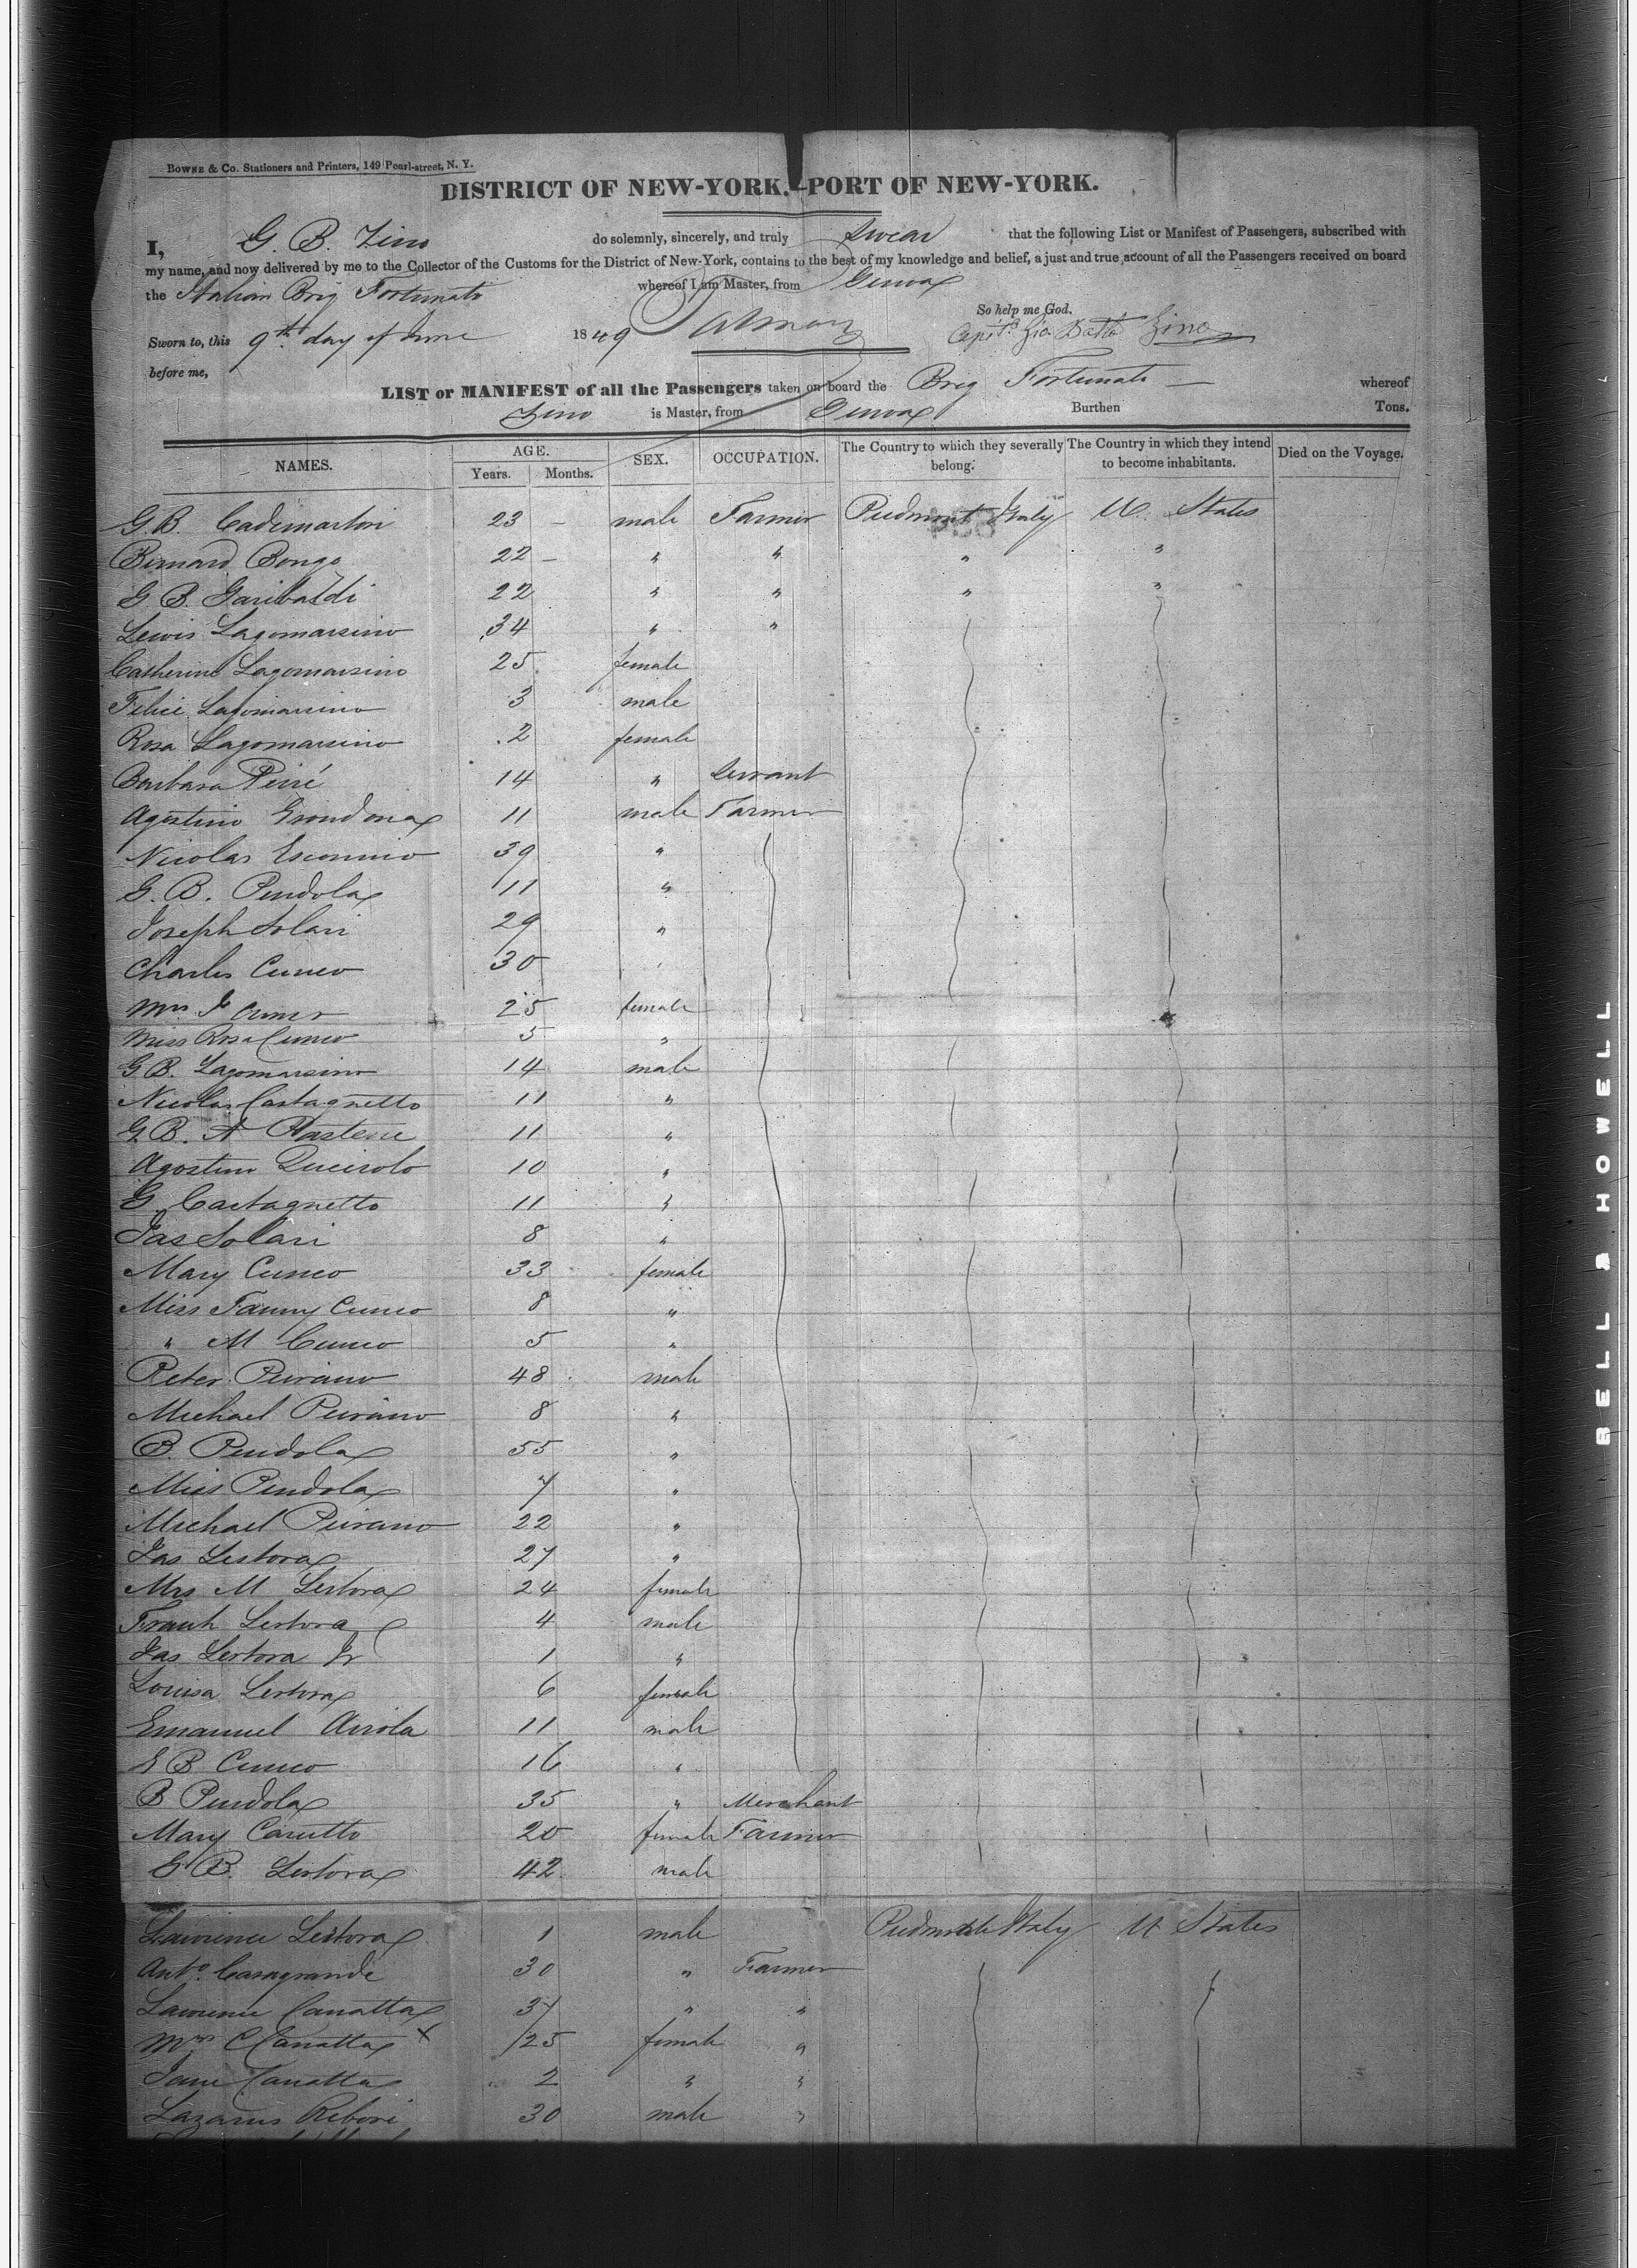 BOWNE & CO. Stationers and Printers, 149 Pearl-street, N. Y.
DISTRICT OF NEW-YORK.—PORT OF NEW-YORK.
I, G. B. Zino do solemnly, sincerely, and truly swear that the following List or Manifest of Passengers, subscribed with
my name, and now delivered by me to the Collector of the Customs for the District of New-York, contains to the best of my knowledge and belief, a just and true account of all the Passengers received on board
the Italian Brig Fortunato whereof I am Master, from Genoa
So help me God.
Sworn to, this 9th day of June 1849 Capt. Gio Batta Zino
before me,
LIST or MANIFEST of all the Passengers taken on board the Brig Fortunato whereof
Zino is Master, from Genoa Burthen Tons.
NAMES. AGE. Years. Months. SEX. OCCUPATION. The Country to which they severally belong. The Country in which they intend to become inhabitants. Died on the Voyage.
G. B. Cademartori 23 — male Farmer Piedmont Italy U. States
Bernard Bongo 22 — " " " "
G. B. Garibaldi 22 " " " "
Lewis Lagomarsino 34 " "
Catherine Lagomarsino 25 female
Felice Lagomarsino 3 male
Rosa Lagomarsino 2 female
Barbara Peiré 14 " Servant
Agostino Grondona 11 male Farmer
Nicolas 39 "
G. B. Pendola 11 "
Joseph Solari 29 "
Charles Cuneo 30 "
Mrs Cuneo 25 female
Miss Rosa Cuneo 5 "
G. B. Lagomarsino 14 male
Nicolas Castagnetto 11 "
G. B. A 11 "
Agostino Queirolo 10 "
G. Castagnetto 11 "
Jas Solari 8 "
Mary Cuneo 33 female
Miss Fanny Cuneo 8 "
" M Cuneo 5 "
Peter Peirano 48 male
Michael Peirano 8 "
B. Pendola 55 "
Miss Pendola 7 "
Michael Peirano 22 "
Jas Lertora 27 "
Mrs M Lertora 24 female
Frank Lertora 4 male
Jas Lertora Jr 1 "
Louisa Lertora 6 female
Emanuel Airola 11 male
G B Cuneo 16 "
B Pendola 35 " Merchant
Mary Canutto 20 female Farmer
G B. Lertora 42 male
Lawrence Lertora 1 male Piedmont Italy U States
Anto. Casagrande 30 " Farmer
Lawrence Canatta 37 " "
Mrs C Canatta x 25 female "
Jane Canatta 2 " "
Lazarus Rebori 30 male "
BELL & HOWELL